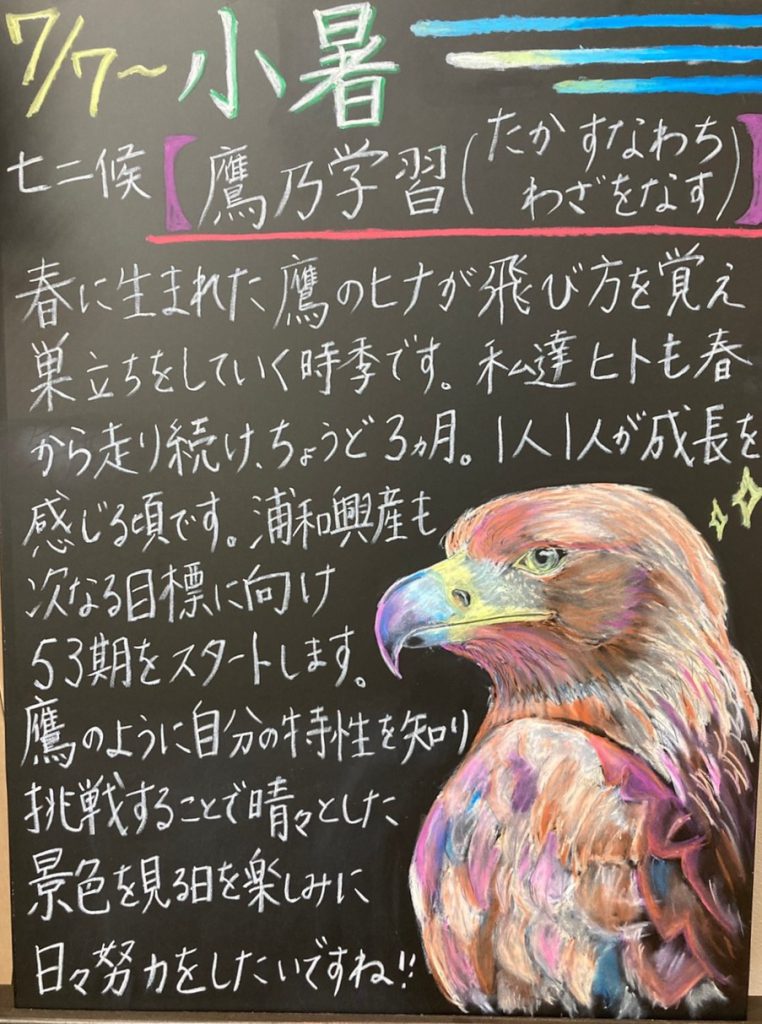 7/7～小暑
七二候【鷹乃学習(たか すなわち
わざをなす)】
春に生まれた鷹のヒナが飛び方を覚え
巣立ちをしていく時季です。私達ヒトも春
から走り続け、ちょうど3ヵ月。1人1人が成長を
感じる頃です。浦和興産も
次なる目標に向け
53期をスタートします。
鷹のように自分の特性を知り
挑戦することで晴々とした
景色を見る日を楽しみに
日々努力をしたいですね!!